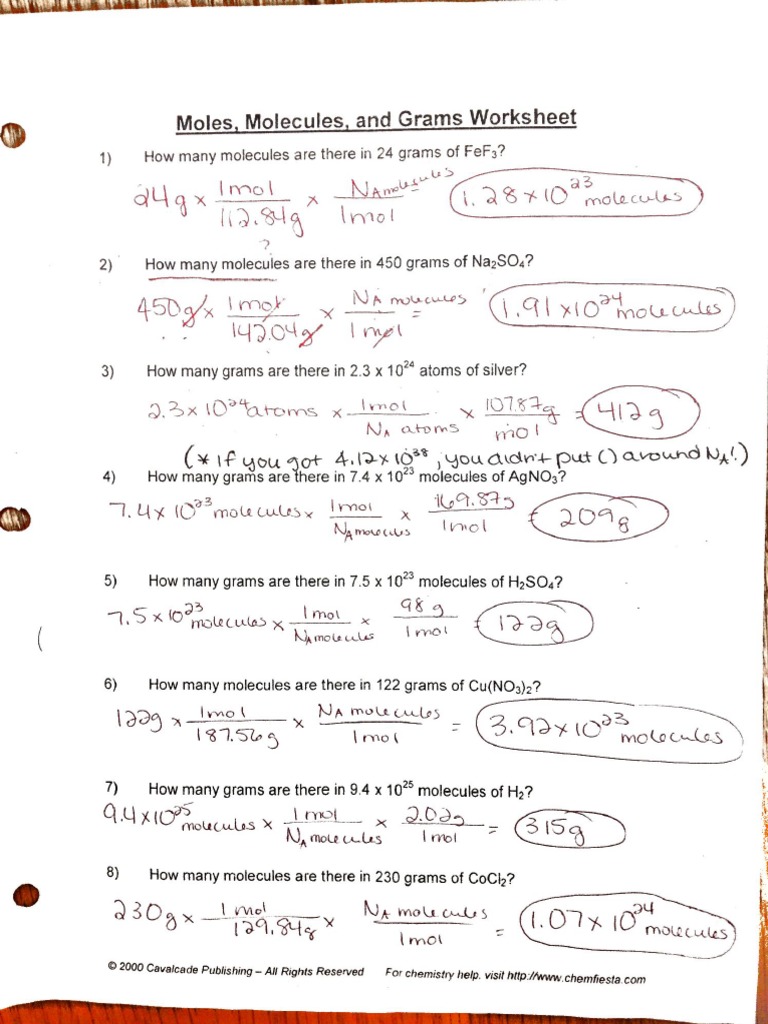 Moles, Molecules, and Grams Worksheet
1) How many molecules are there in 24 grams of FeF₃?
24g x 1mol / 112.84g x NA molecules / 1mol 1.28 x 10²³ molecules
?
2) How many molecules are there in 450 grams of Na₂SO₄?
450g x 1mol / 142.04g x NA molecules / 1mol = 1.91 x 10²⁴ molecules
3) How many grams are there in 2.3 x 10²⁴ atoms of silver?
2.3 x 10²⁴ atoms x 1mol / NA atoms x 107.87g / mol = 412g
(* If you got 4.12 x 10³⁸, you didn't put () around NA!)
4) How many grams are there in 7.4 x 10²³ molecules of AgNO₃?
7.4 x 10²³ molecules x 1mol / NA molecules x 169.87g / 1mol = 209g
5) How many grams are there in 7.5 x 10²³ molecules of H₂SO₄?
7.5 x 10²³ molecules x 1mol / NA molecules x 98g / 1mol = 122g
6) How many molecules are there in 122 grams of Cu(NO₃)₂?
122g x 1mol / 187.56g x NA molecules / 1mol = 3.92 x 10²³ molecules
7) How many grams are there in 9.4 x 10²⁵ molecules of H₂?
9.4 x 10²⁵ molecules x 1mol / NA molecules x 2.02g / 1mol = 315g
8) How many molecules are there in 230 grams of CoCl₂?
230g x 1mol / 129.84g x NA molecules / 1mol = 1.07 x 10²⁴ molecules
© 2000 Cavalcade Publishing – All Rights Reserved For chemistry help. visit http://www.chemfiesta.com